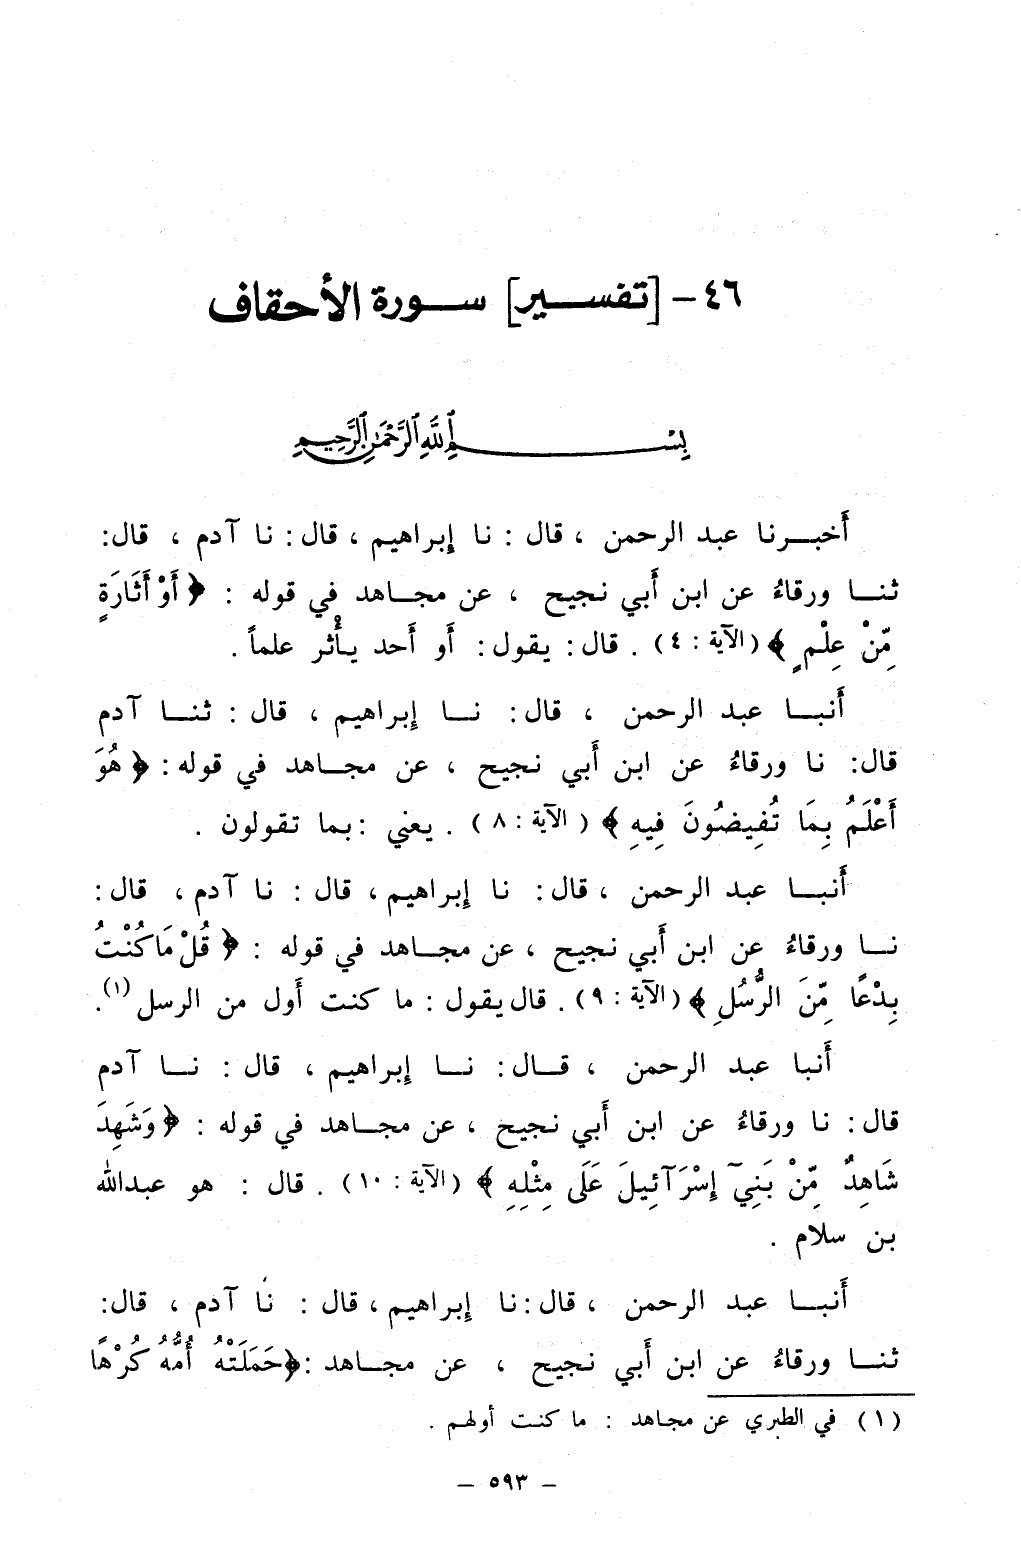 ٤٦ - [تفسير] سورة الأحقاف
بِسْمِ ٱللَّهِ ٱلرَّحْمَٰنِ ٱلرَّحِيمِ
أَخبرنا عبد الرحمن ، قال : نا إِبراهيم ، قال : نا آدم ، قال:
ثنا ورقاءُ عن ابن أَبي نجيح ، عن مجاهد في قوله : ﴿ أَوْ أَثَارَةٍ
مِّنْ عِلْمٍ ﴾ (الآية : ٤) . قال : يقول : أَو أَحد يأْثُر علماً .
أَنبا عبد الرحمن ، قال : نا إِبراهيم ، قال : ثنا آدم
قال: نا ورقاءُ عن ابن أَبي نجيح ، عن مجاهد في قوله : ﴿ هُوَ
أَعْلَمُ بِمَا تُفِيضُونَ فِيهِ ﴾ ( الآية : ٨ ) . يعني : بما تقولون .
أَنبا عبد الرحمن ، قال : نا إِبراهيم ، قال : نا آدم ، قال :
نا ورقاءُ عن ابن أَبي نجيح ، عن مجاهد في قوله : ﴿ قُلْ مَا كُنْتُ
بِدْعًا مِّنَ الرُّسُلِ ﴾ (الآية : ٩) . قال يقول : ما كنت أَول من الرسل (١).
أَنبا عبد الرحمن ، قال : نا إِبراهيم ، قال : نا آدم
قال : نا ورقاءُ عن ابن أَبي نجيح ، عن مجاهد في قوله : ﴿ وَشَهِدَ
شَاهِدٌ مِّنْ بَنِيٓ إِسْرَآئِيلَ عَلَى مِثْلِهِ ﴾ (الآية : ١٠) . قال : هو عبدالله
بن سلام .
أَنبا عبد الرحمن ، قال : نا إِبراهيم ، قال : نا آدم ، قال:
ثنا ورقاءُ عن ابن أَبي نجيح ، عن مجاهد : ﴿حَمَلَتْهُ أُمُّهُ كُرْهًا
(١) في الطبري عن مجاهد : ما كنت أولهم .
– ٥٩٣ –